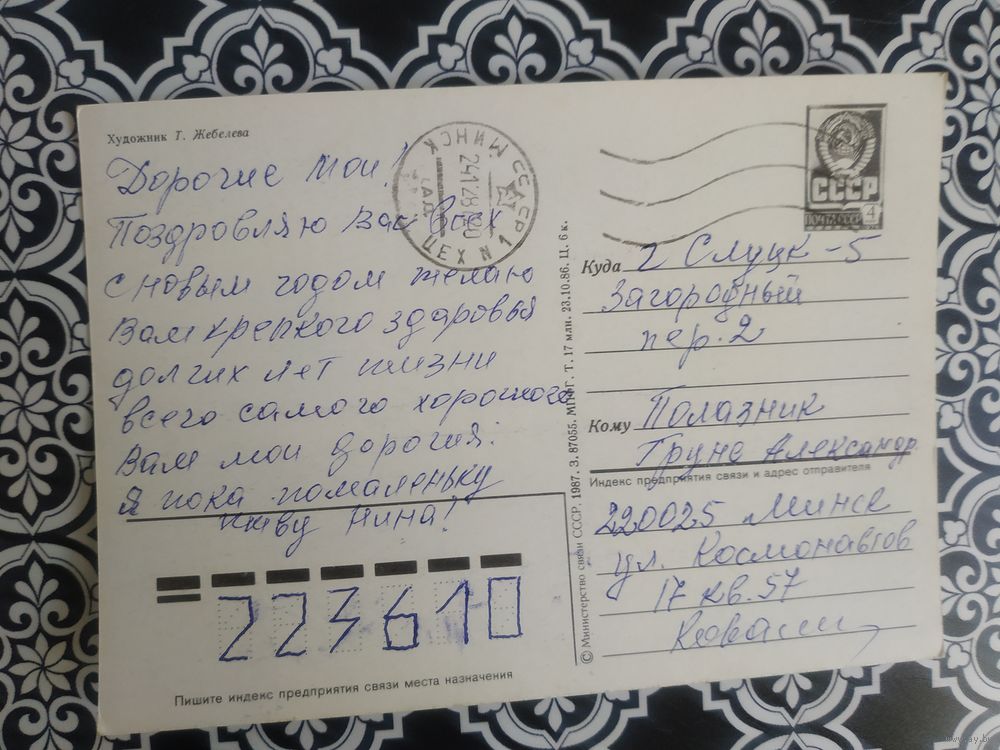 Художник Т. Жебелева
Дорогие мои!
Поздровляю Вас Всех
с новым годом желаю
Вам крепкого здаровья
долгих лет жизни
всего самого хорошего
Вам мои дорогия:
Я пока помаленьку
живу Нина!
223610
Пишите индекс предприятия связи места назначения
СССР
МИНСК
ЦЕХ N 1
© Министерство связи СССР, 1987. З. 87055. МПФГ. Т. 17 млн. 23.10.86. Ц. 6 к.
СССР
ПОЧТА СССР 4
Куда г Слуцк-5
Загородный
пер. 2
Кому Полазник
Груне Александр
Индекс предприятия связи и адрес отправителя
220025 Минск
ул. Космонавтов
17 кв. 57